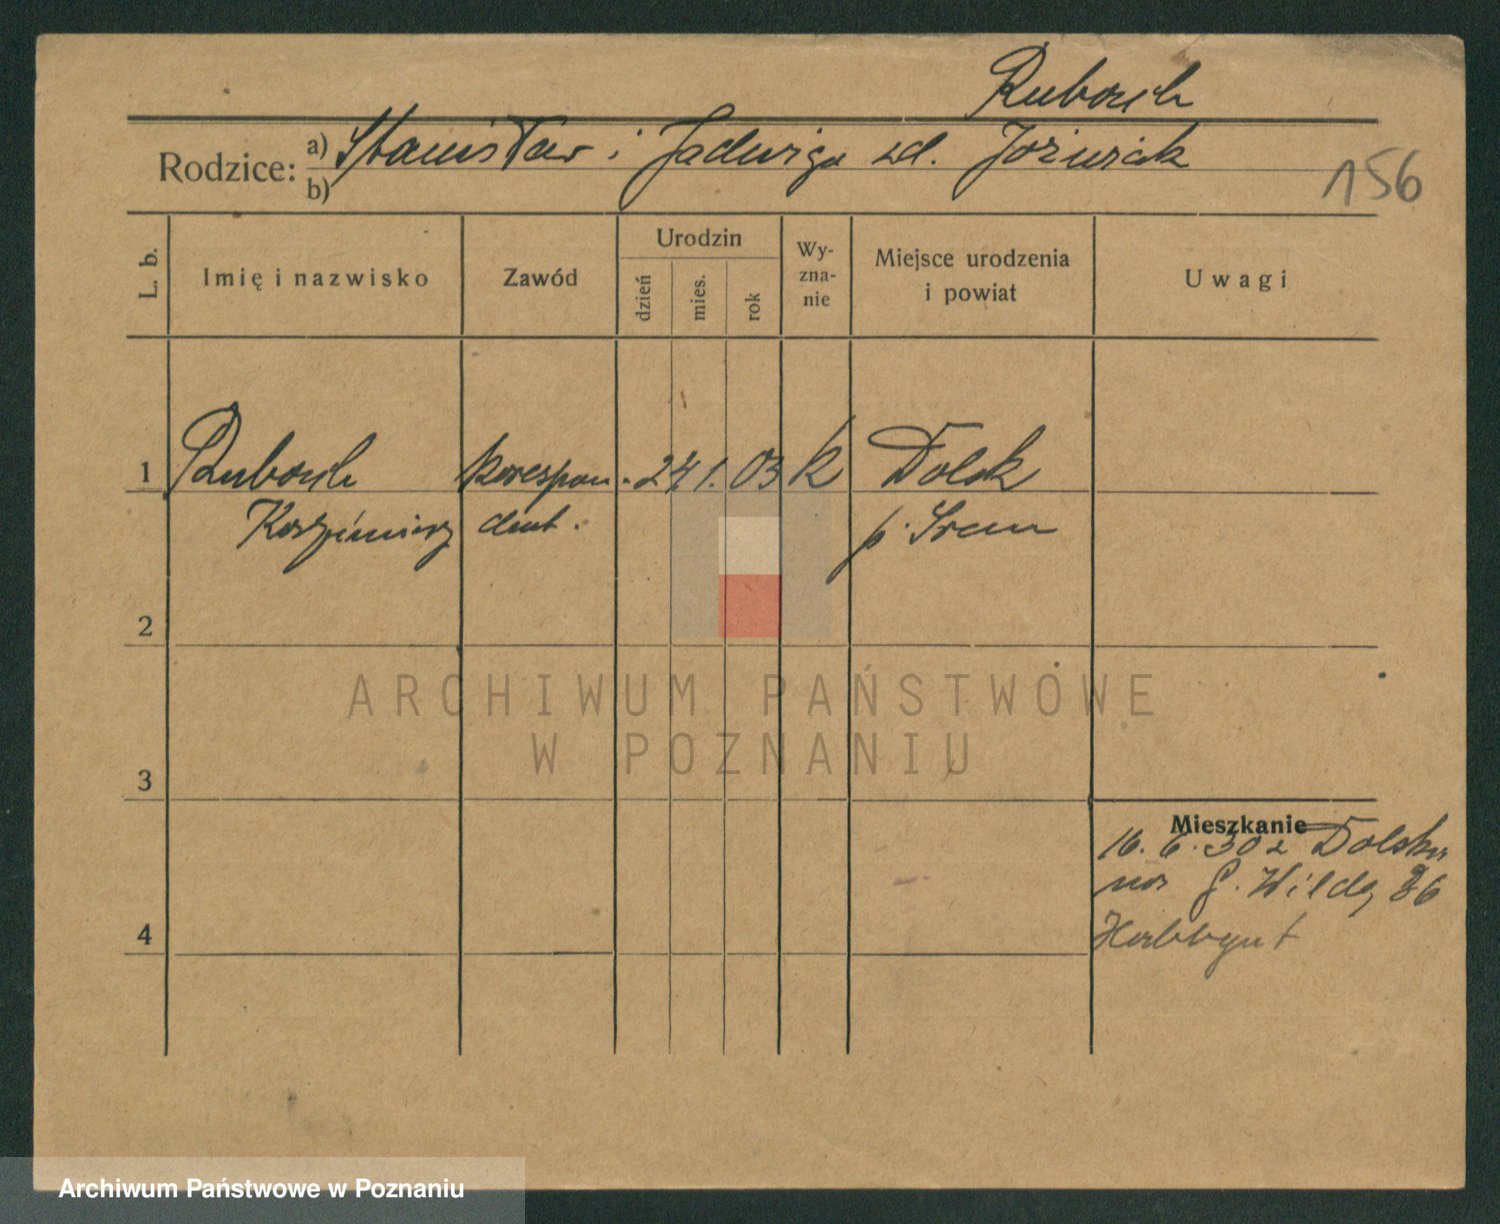 Rubach
Rodzice: a) Stanisław i Jadwiga zd. Jóźwiak
b)
156
L. b.
Imię i nazwisko
Zawód
Urodzin
dzień
mies.
rok
Wy-
zna-
nie
Miejsce urodzenia
i powiat
Uwagi
1 Rubach korespon- 24 1. 03 k Dolsk
Kazimierz dent. p. Śrem
2
ARCHIWUM PAŃSTWOWE
W POZNANIU
3
Mieszkanie
16. 6. 30 z Dolska
G. Wilda 86
4
Archiwum Państwowe w Poznaniu